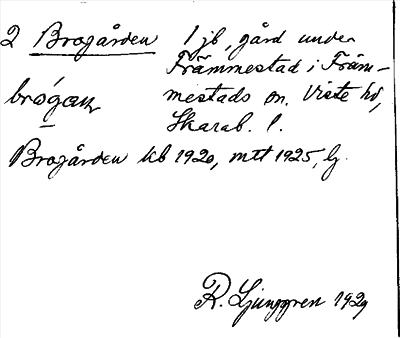 2 Brogården 1 jb, gård under
Främmestad i Främ-
brógaɳ mestads sn. Viste hd,
Skarab. l.
Brogården kb 1920, mtt 1925, lj.
R. Ljunggren 1929